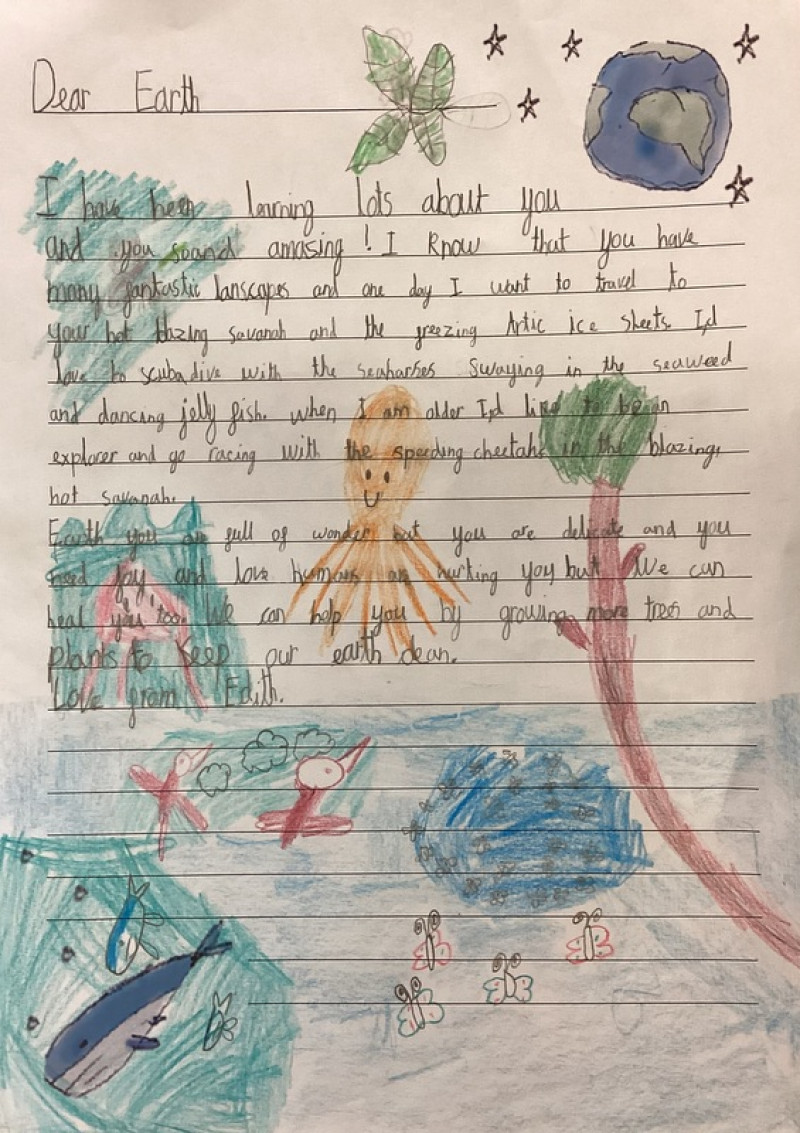 Dear Earth
I have been learning lots about you
and you sound amasing! I know that you have
many fantastic lanscapes and one day I want to travel to
your hot blazing savanah and the freezing Artic ice sheets. I,d
love to scuba dive with the seaharses swaying in the seaweed
and dancing jelly fish. when I am older I,d like to be an
explorer and go racing with the speeding cheetahs in the blazing,
hot savanah.
Earth you are full of wonder but you are delicate and you
need joy and love humans are hurting you but We can
heal you too. We can help you by growing more trees and
plants to keep our earth clean.
Love from Edith.